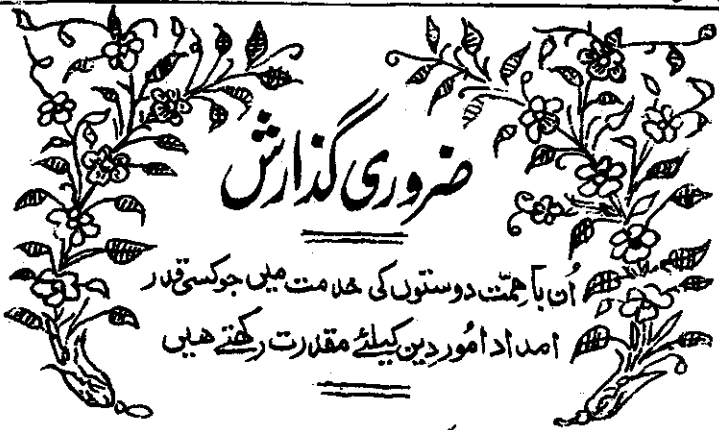 ضروری گذارش
اُن باہمّت دوستوں کی خدمت میں جو کسی قدر
امداد اُمور دین کیلئے مقدرت رکھتے ھیں